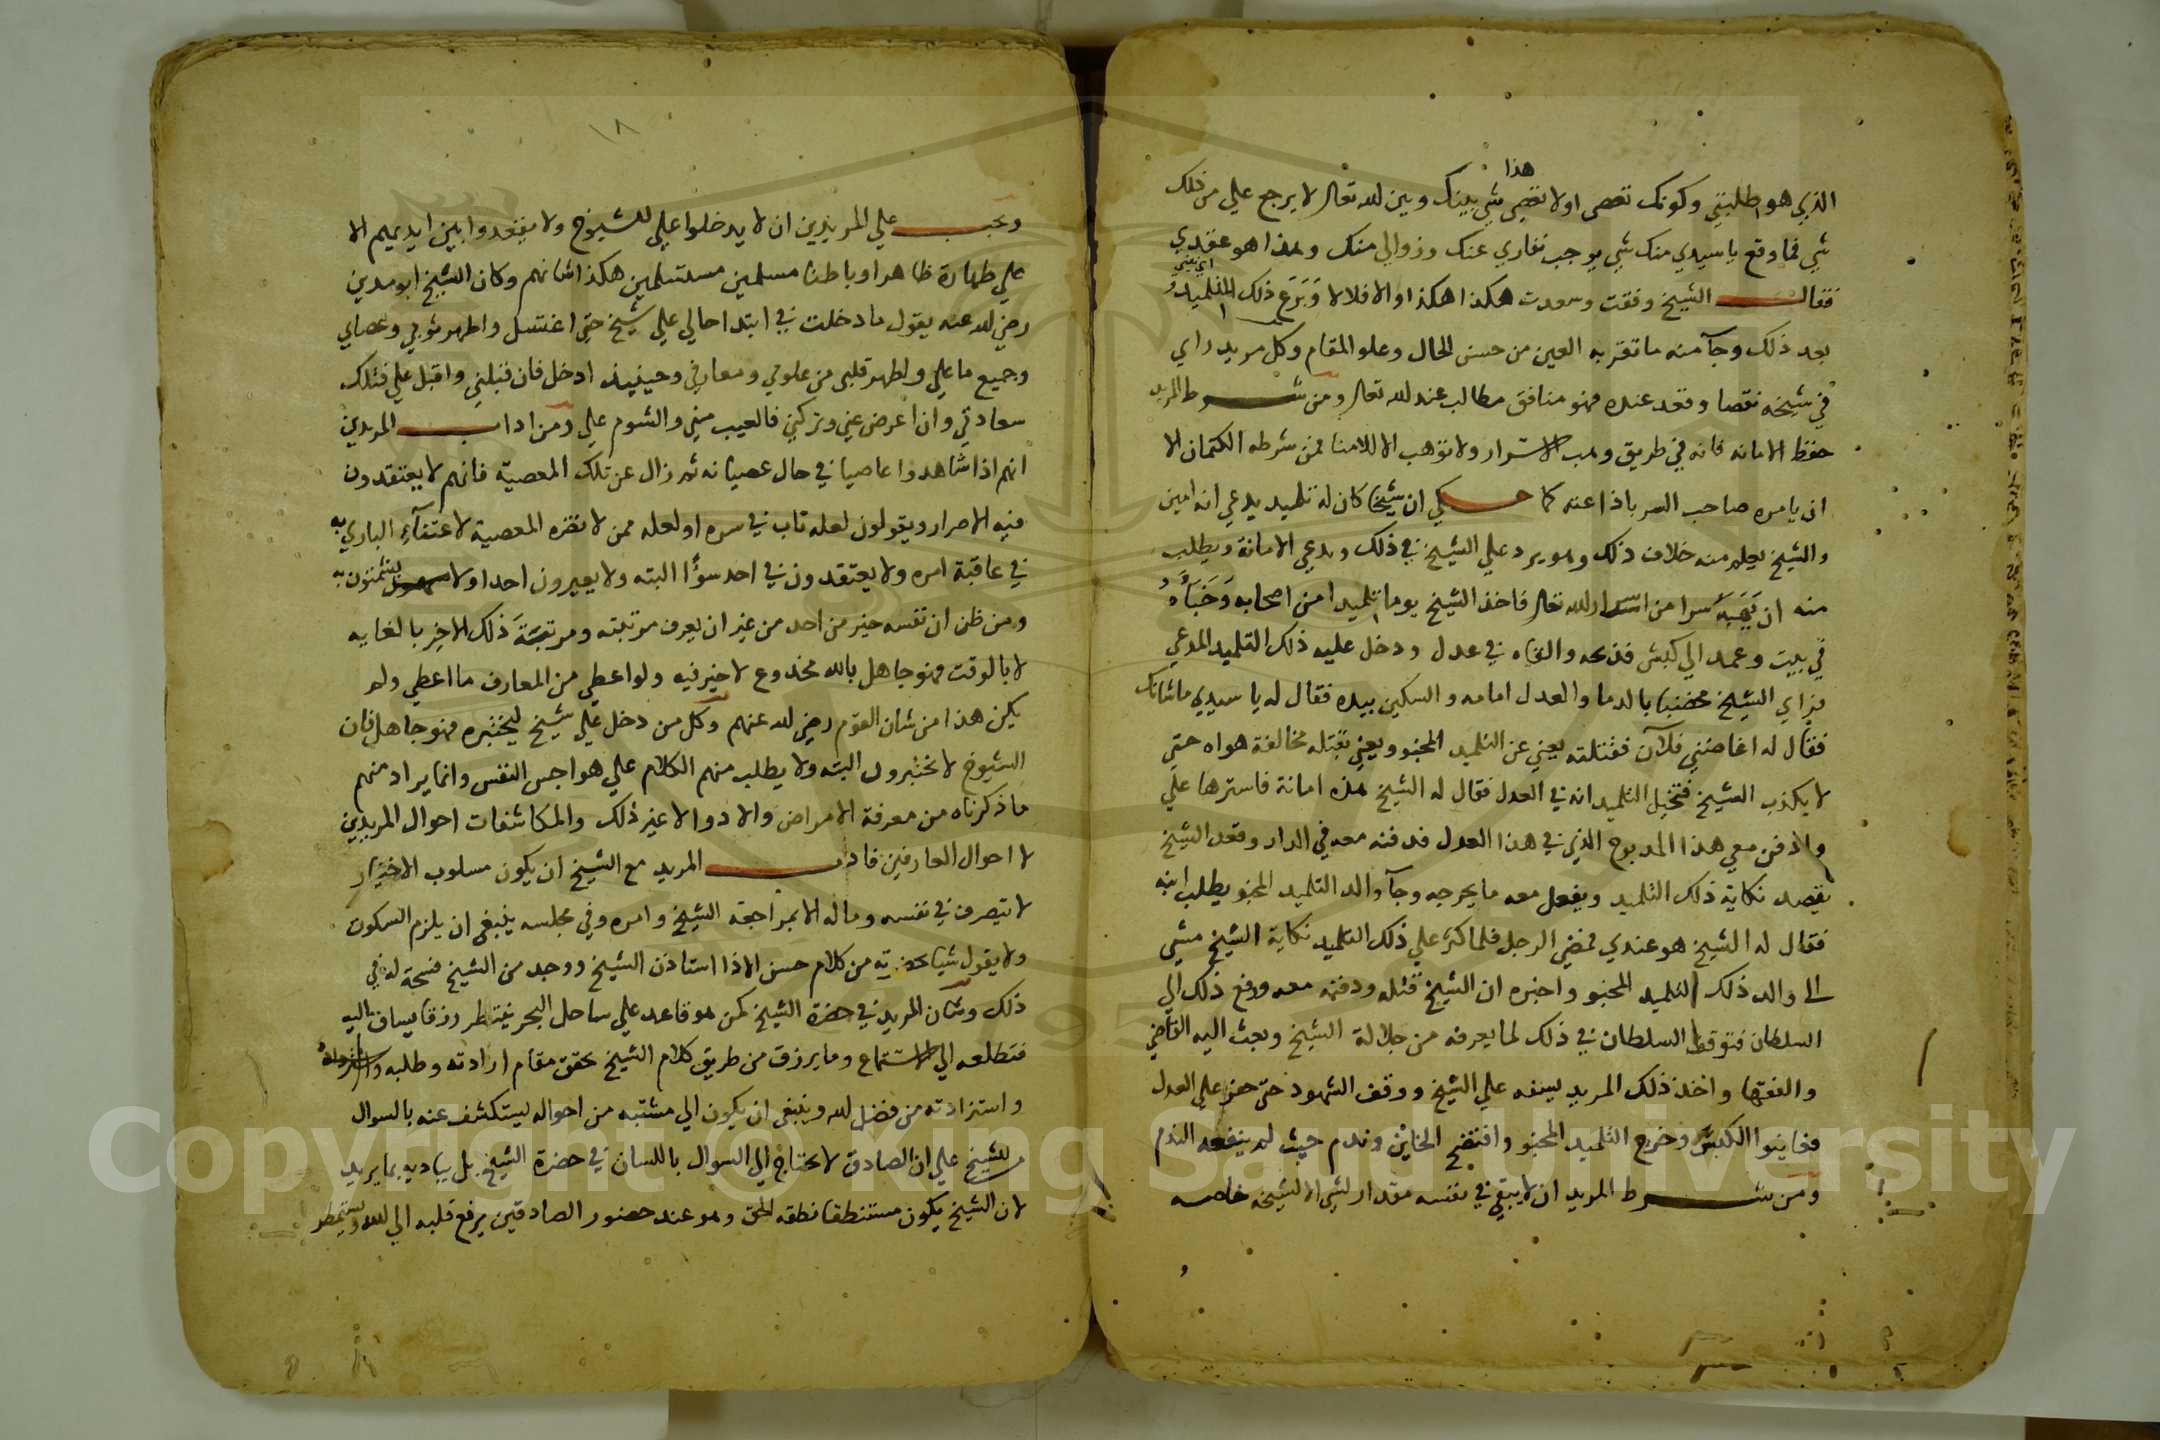 هذا
الذي هو طلبتي وكونك تعصي اولا تعصي شي بينك وبين الله تعالى لا يرجع علي من ذلك
شي فما وقع يا سيدي منك شي يوجب نفاري عنك وزوالي منك وهذا هو عقدي
فقال الشيخ وفقت وسعدت هكذا هكذا والا فلا لا وَبَرَع ذلك التلميذ
بعد ذلك وجآ منه ما تقر به العين من حسن الحال وعلو المقام وكل مريد راي
في شيخه نقصا وقعد عنده فهو منافق مطالب عند الله تعالى ومن شرط المريد
حفظ الامانه فانه في طريق وهب الاسرار ولا توهب الا للامنا فمن شرطه الكتمان الا
ان يامره صاحب السر باذاعته كما حكي ان شيخا كان له تلميذ يدعي انه امين
والشيخ يعلم منه خلاف ذلك وهو يرد علي الشيخ في ذلك ويدعي الامانة ويطلب
منه ان يَهَبه سرا من اسرار الله تعالى فاخذ الشيخ يوما تلميذا من اصحابه وَخَبَأَهُ
في بيت وعمد الي كبش فذبحه والقاه في عدل ودخل عليه ذلك التلميذ المدعي
فراي الشيخ مخضبا بالدما والعدل امامه والسكين بيده فقال له يا سيدي ما شانك
فقال له اغاضني فلآن فقتلته يعني عن التلميذ المخبو ويعني بقتله مخالفة هواه حتي
لا يكذب الشيخ فتخيل التلميذ انه في العدل فقال له الشيخ هذه امانة فاسترها علي
وادفن معي هذا المذبوح الذي في هذا العدل فدفنه معه في الدار وقعد الشيخ
يقصد نكاية ذلك التلميذ ويفعل معه ما يحرجه وجآ والد التلميذ المخبو يطلب ابنه
فقال له الشيخ هو عندي فمضي الرجل فلما كثر علي ذلك التلميذ نكاية الشيخ مشي
الى والد ذلك التلميذ المخبو واخبره ان الشيخ قتله ودفنه معه ورفع ذلك الي
السلطان فتوقف السلطان في ذلك لما يعرفه من جلالة الشيخ وبعث اليه القاضي
والفقها واخذ ذلك المريد يسفه علي الشيخ ووقف الشهود حتى حفر علي العدل
فعاينوا الكبش وخرج التلميذ المخبو وافتضح الخاين وندم حيث لم ينفعه الندم
ومن شرط المريد ان لا يبقي في نفسه مقدار لشي الا لشيخه خاصه
١٨
ويجب علي المريدين ان لا يدخلوا علي الشيوخ ولا يقعدوا بين ايديهم الا
علي طهارة ظاهرا وباطنا مسلمين مستسلمين هكذا شانهم وكان الشيخ ابو مدين
رضي الله عنه يقول ما دخلت في ابتدا حالي علي شيخ حتي اغتسل واطهر ثوبي وعصاي
وجميع ما علي واطهر قلبي من علومي ومعارفي وحينيذ ادخل فان قبلني واقبل علي فتلك
سعادتي وان اعرض عني وتركني فالعيب مني والشوم علي ومن اداب المريدين
انهم اذا شاهدوا عاصيا في حال عصيانه ثم زال عن تلك المعصية فانهم لا يعتقدون
فيه الاصرار ويقولون لعله تاب في سره او لعله ممن لا تضره المعصية لاعتنآء الباري به
في عاقبة امره ولا يعتقدون في احد سوأ البته ولا يعيرون احدا ولا يشمتون به
ومن ظن ان نفسه خير من احد من غير ان يعرف مرتبته ومرتبةَ ذلك الاخر بالغايه
لا بالوقت فهو جاهل بالله مخدوع لا خير فيه ولو اعطي من المعارف ما اعطي ولم
يكن هذا من شان القوم رضي الله عنهم وكل من دخل علي شيخ ليختبره فهو جاهل فان
الشيوخ لا تختبرون البته ولا يطلب منهم الكلام علي هواجس النفس وانما يراد منهم
ما ذكرناه من معرفة الامراض والادوا لا غير ذلك والمكاشفات احوال المريدين
لا احوال العارفين فاداب المريد مع الشيخ ان يكون مسلوب الاختيار
لا يتصرف في نفسه وماله الا بمراجعة الشيخ وامره وفي مجلسه ينبغي ان يلزم السكوت
ولا يقول شيا بحضرته من كلام حسن الا اذا استاذن الشيخ ووجد من الشيخ فسحة له في
ذلك وشان المريد في حضرة الشيخ كمن هو قاعد علي ساحل البحر ينتظر رزقا يساق اليه
فتطلعه الي الاستماع وما يرزق من طريق كلام الشيخ يحقق مقام ارادته وطلبه
واستزادته من فضل الله وينبغي ان يكون الي مشتبه من احواله ليستكشف عنه بالسوال
للشيخ علي ان الصادق لا يحتاج الي السوال باللسان في حضرة الشيخ بل يباديه بما يريد
لان الشيخ يكون مستنطقا نطقه الحق وهو عند حضور الصادقين يرفع قلبه الي الله ويستمطر
Copyright © King Saud University